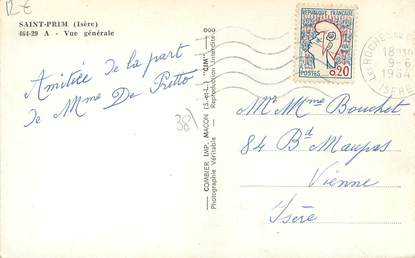 R-E
SAINT-PRIM (Isère)
464-29 A - Vue générale
Amitiée de la part
de Mme De Pretto
38)
COMBIER IMP. MACON (S.-et-L.) "CIM"
Photographie Véritable - Reproduction interdite
000
REPUBLIQUE FRANÇAISE
POSTES 0,20
18H30
9-6
1964
ISERE
Mr Mme Bouchet
84 Bd Maupas
Vienne
Isère